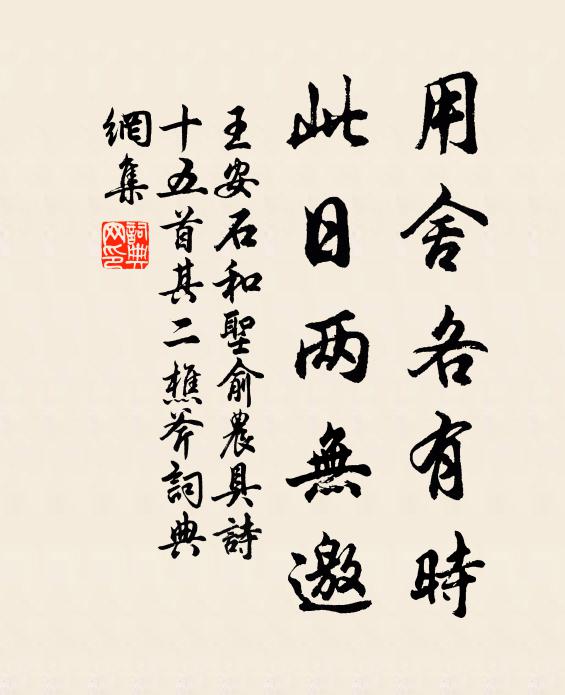 用舍各有時
此日两無邀
王安石和聖俞農具詩
十五首其二樵斧詞典
網集
詞典网印